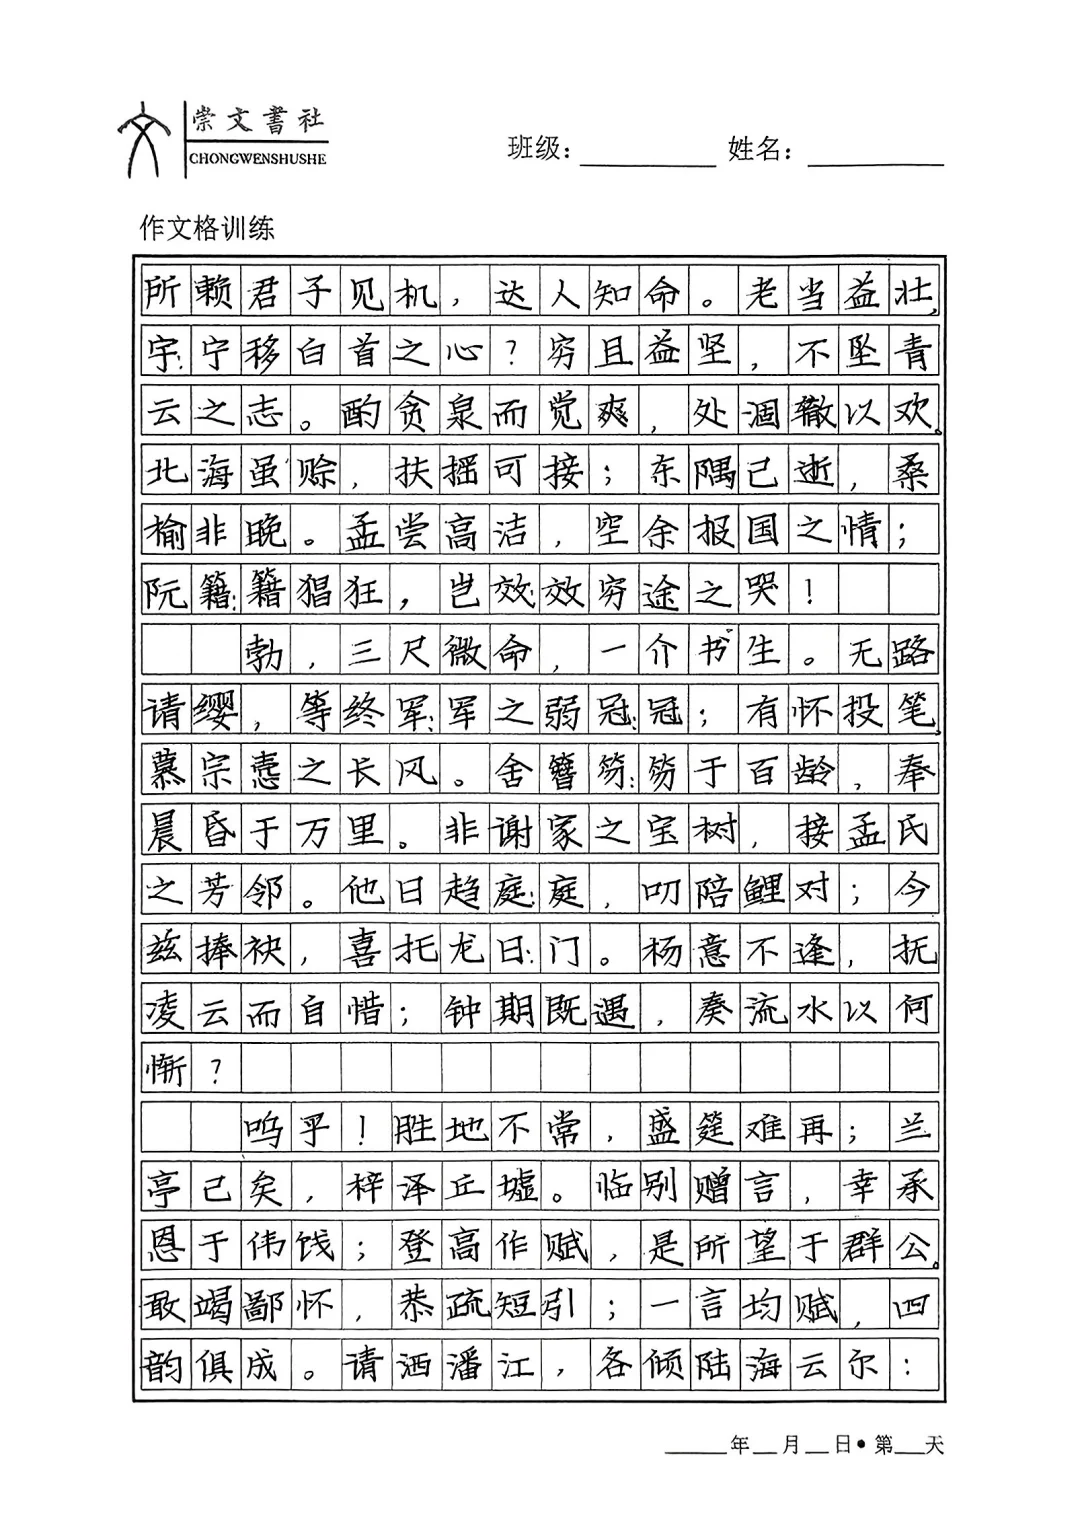 崇文書社
CHONGWENSHUSHE
班级：
姓名：
作文格训练
所赖君子见机，达人知命。老当益壮，
宇：宁移白首之心？穷且益坚，不坠青
云之志。酌贪泉而觉爽，处涸辙以欢。
北海虽赊，扶摇可接；东隅已逝，桑
榆非晚。孟尝高洁，空余报国之情；
阮籍：籍猖狂，岂效：效穷途之哭！
勃，三尺微命，一介书生。无路
请缨，等终军：军之弱冠：冠；有怀投笔，
慕宗悫之长风。舍簪笏：笏于百龄，奉
晨昏于万里。非谢家之宝树，接孟氏
之芳邻。他日趋庭：庭，叨陪鲤对；今
兹捧袂，喜托龙日：门。杨意不逢，抚
凌云而自惜；钟期既遇，奏流水以何
惭？
呜乎！胜地不常，盛筵难再；兰
亭已矣，梓泽丘墟。临别赠言，幸承
恩于伟饯；登高作赋，是所望于群公。
敢竭鄙怀，恭疏短引；一言均赋，四
韵俱成。请洒潘江，各倾陆海云尔：
年 月 日•第 天